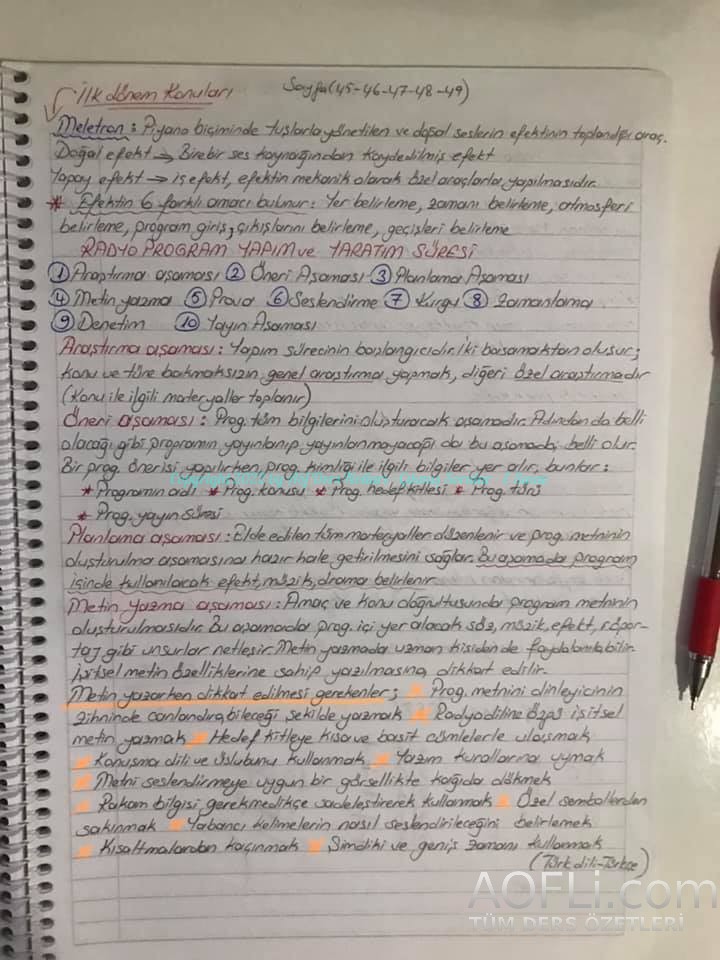 İlk dönem Konuları Sayfa(45-46-47-48-49)
Meletron: Piyano biçiminde tuşlarla yönetilen ve doğal seslerin efektinin toplandığı araç.
Doğal efekt → Birebir ses kaynağından kaydedilmiş efekt
Yapay efekt → iş efekt, efektin mekanik olarak özel araçlarla yapılmasıdır.
* Efektin 6 farklı amacı bulunur: Yer belirleme, zamanı belirleme, atmosferi
belirleme, program giriş, çıkışlarını belirleme, geçişleri belirleme
RADYO PROGRAM YAPIM ve YARATIM SÜRESİ
① Araştırma aşaması ② Öneri Aşaması ③ Planlama Aşaması
④ Metin yazma ⑤ Prova ⑥ Seslendirme ⑦ Kurgu ⑧ Zamanlama
⑨ Denetim ⑩ Yayın Aşaması
Araştırma aşaması: Yapım sürecinin başlangıcıdır. İki basamaktan oluşur;
konu ve türe bakmaksızın genel araştırma yapmak, diğeri özel araştırmadır
(Konu ile ilgili materyaller toplanır)
Öneri aşaması: Prog. tüm bilgilerini oluşturacak aşamadır. Adından da belli
olacağı gibi programın yayınlanıp yayınlanmayacağı da bu aşamada belli olur.
Bir prog. önerisi yapılırken, prog. kimliği ile ilgili bilgiler yer alır, bunlar:
* Programın adı * Prog. konusu * Prog. hedef kitlesi * Prog. türü
* Prog. yayın süresi
Planlama aşaması: Elde edilen tüm materyaller düzenlenir ve prog. metninin
oluşturulma aşamasına hazır hale getirilmesini sağlar. Bu aşamada program
içinde kullanılacak efekt, müzik, drama belirlenir.
Metin yazma aşaması: Amaç ve konu doğrultusunda program metninin
oluşturulmasıdır. Bu aşamada prog. içi yer alacak söz, müzik, efekt, röpor-
taj gibi unsurlar netleşir. Metin yazmada uzman kişiden de faydalanılabilir.
İşitsel metin özelliklerine sahip yazılmasına dikkat edilir.
Metin yazarken dikkat edilmesi gerekenler; * Prog. metnini dinleyicinin
zihninde canlandırabileceği şekilde yazmak * Radyo diline özgü işitsel
metin yazmak * Hedef kitleye kısa ve basit cümlelerle ulaşmak
* Konuşma dili ve üslubunu kullanmak * Yazım kurallarına uymak
* Metni seslendirmeye uygun bir görsellikte kağıda dökmek
* Rakam bilgisi gerekmedikçe sadeleştirerek kullanmak * Özel sembollerden
sakınmak * Yabancı kelimelerin nasıl seslendirileceğini belirlemek
* Kısaltmalardan kaçınmak * Şimdiki ve geniş zamanı kullanmak
(Türk dili-Türkçe)
AOFLi.com
TÜM DERS ÖZETLERİ